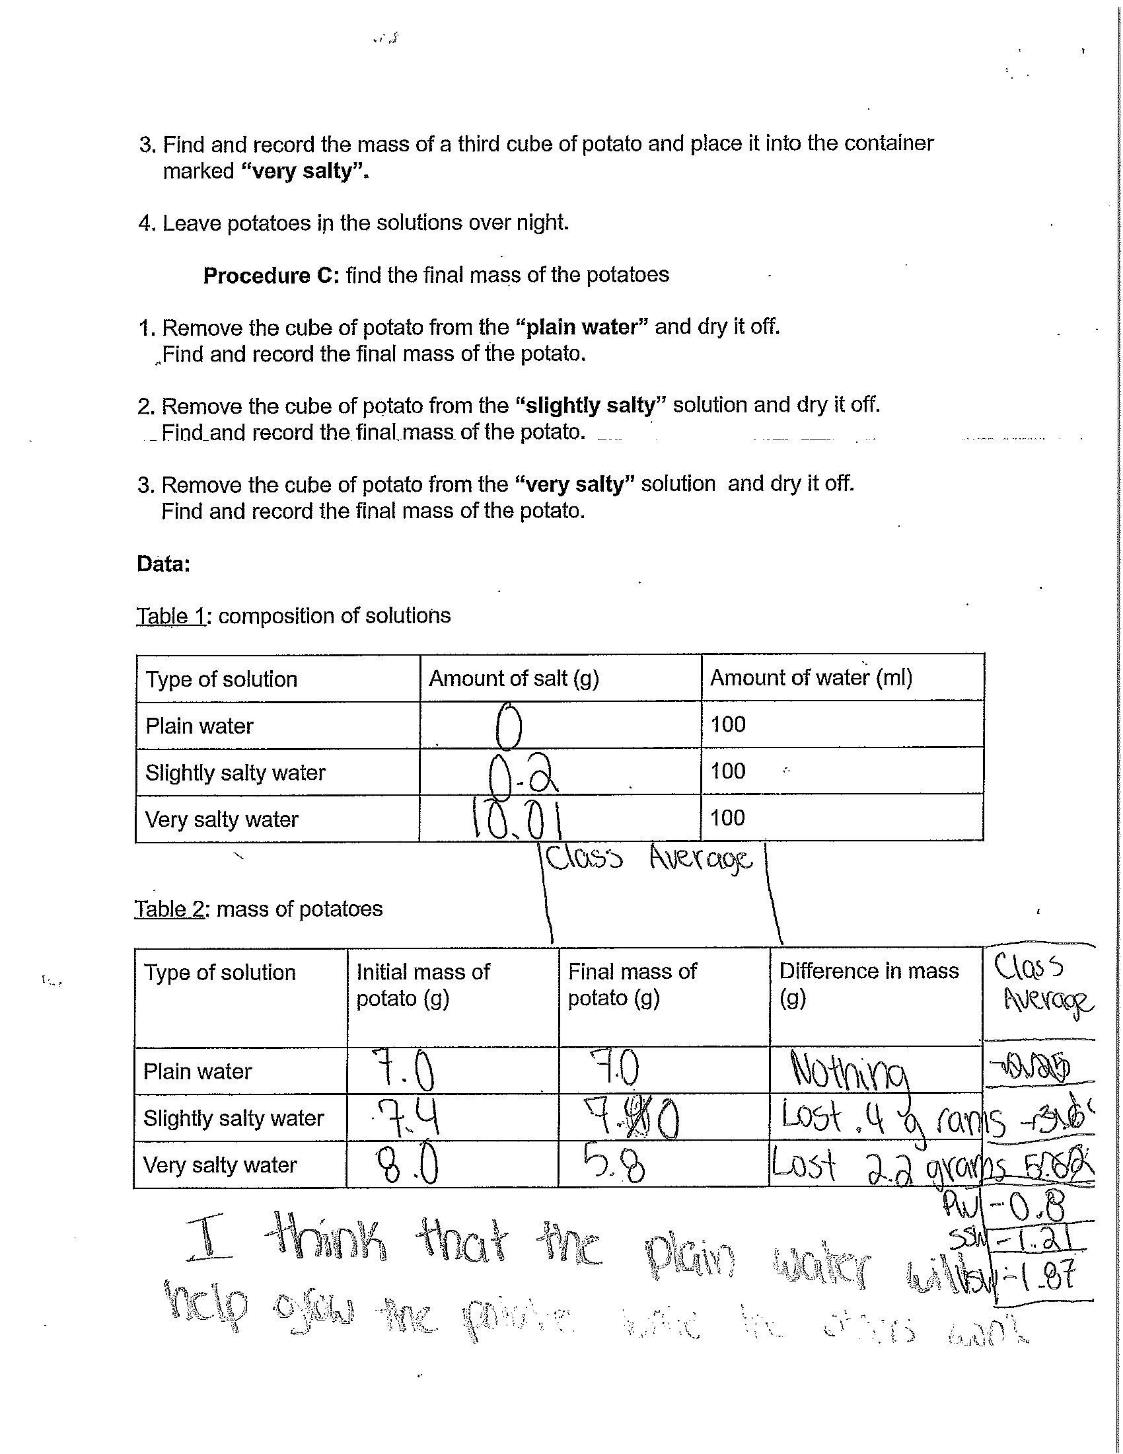 3. Find and record the mass of a third cube of potato and place it into the container
marked “very salty”.
4. Leave potatoes in the solutions over night.
Procedure C: find the final mass of the potatoes
1. Remove the cube of potato from the “plain water” and dry it off.
Find and record the final mass of the potato.
2. Remove the cube of potato from the “slightly salty” solution and dry it off.
Find and record the final mass of the potato.
3. Remove the cube of potato from the “very salty” solution and dry it off.
Find and record the final mass of the potato.
Data:
Table 1: composition of solutions
Type of solution Amount of salt (g) Amount of water (ml)
Plain water 0 100
Slightly salty water 0.2 100
Very salty water 10.01 100
Class Average
Table 2: mass of potatoes
Type of solution Initial mass of Final mass of Difference in mass Class
potato (g) potato (g) (g) Average
Plain water 7.0 7.0 Nothing
Slightly salty water 7.4 7.0 Lost .4 grams
Very salty water 8.0 5.8 Lost 2.2 grams
PW -0.8
SSW -1.21
VSW -1.87
I think that the plain water will
help grow the while the others won't